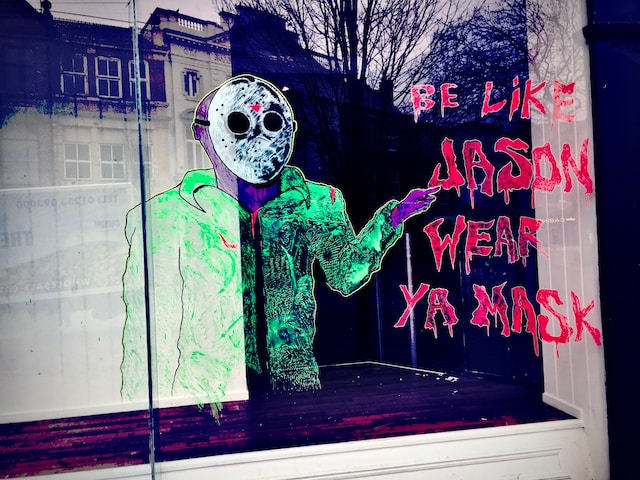 BE LiKE
JASON
WEAR
YA MASK